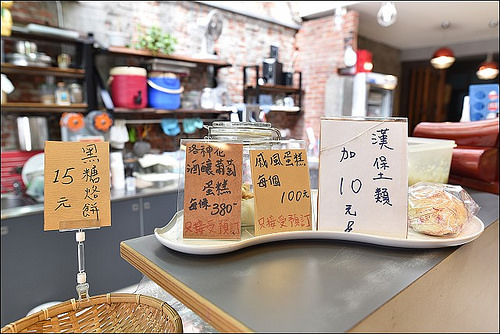 黑糖烙餅
15元
洛神花
酒釀葡萄
蛋糕
每條380-
只接受預訂
戚風蛋糕
每個
100元
只接受預訂
漢堡類
加10元